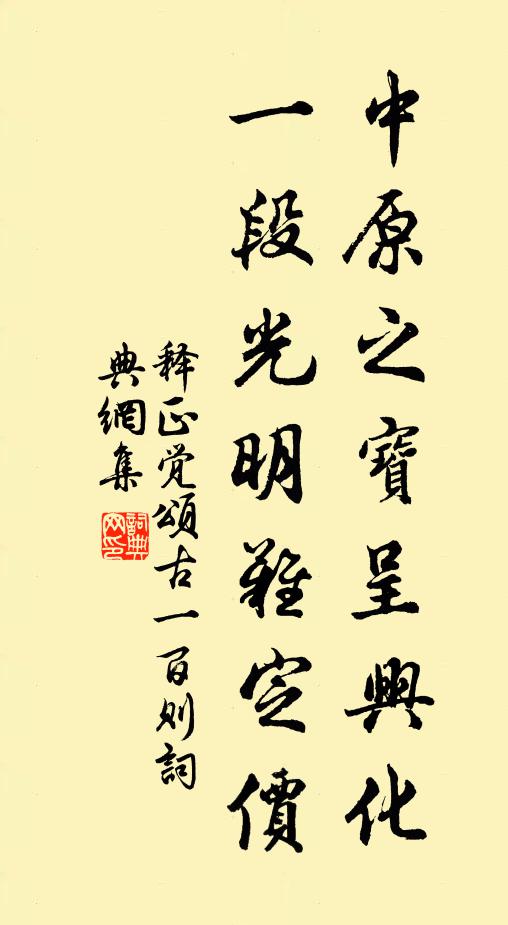 中原之寶呈興化
一段光明難定價
释正覺頌古一百则詞
典網集
詞典
网印